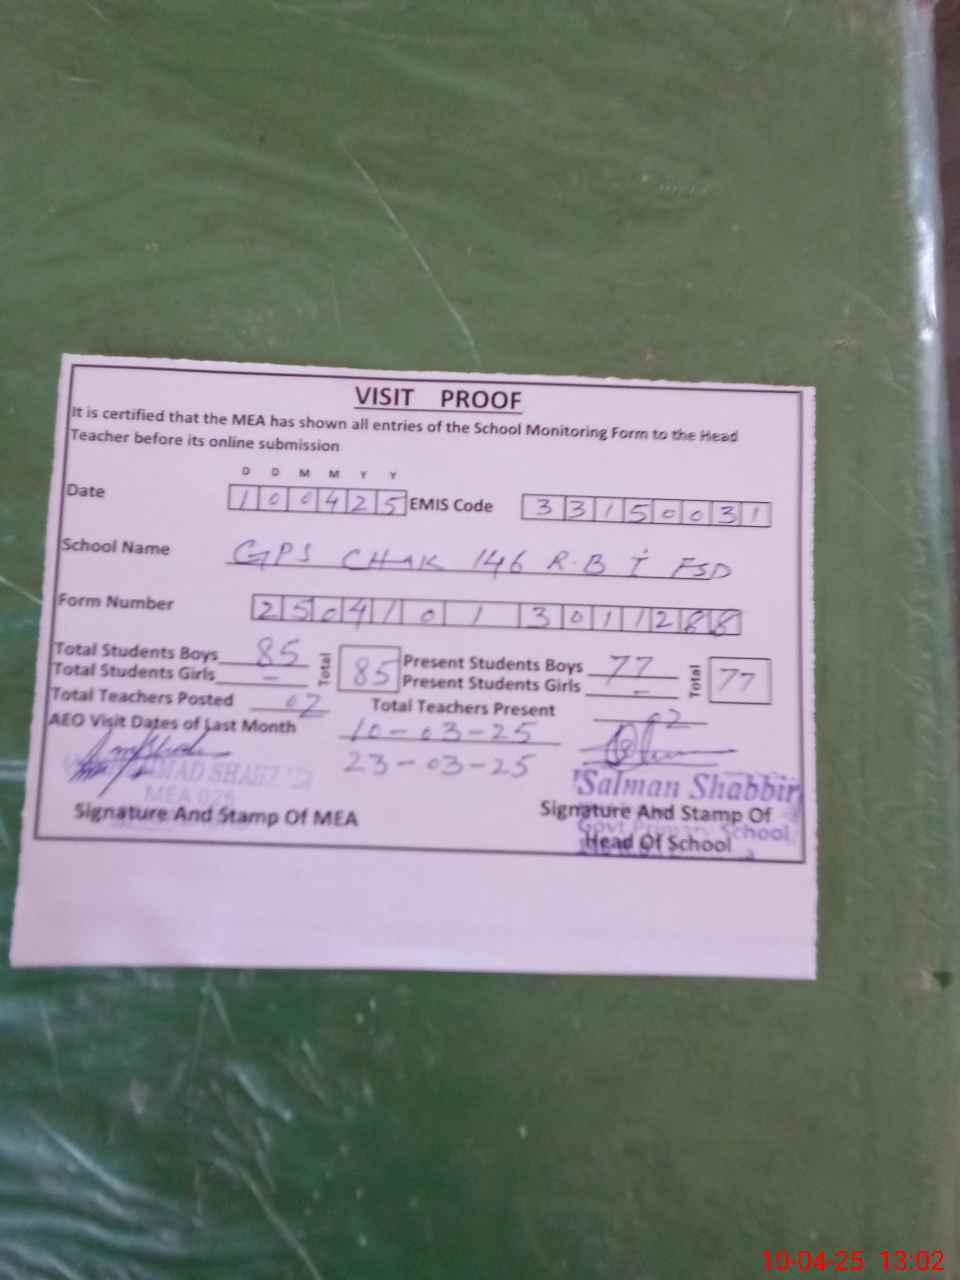 VISIT PROOF
It is certified that the MEA has shown all entries of the School Monitoring Form to the Head
Teacher before its online submission
D D M M Y Y
Date 100425 EMIS Code 33150031
School Name GPS CHAK 146 R.B I FSD
Form Number 2504101301128
Total Students Boys 85 Total 85 Present Students Boys 77 Total 77
Total Students Girls - Present Students Girls -
Total Teachers Posted 02 Total Teachers Present 02
AEO Visit Dates of Last Month 10-03-25
23-03-25
Salman Shabbir
MEA
Signature And Stamp Of MEA Signature And Stamp Of
Govt. Primary School
Head Of School
10-04-25 13:02